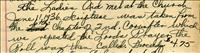 The Ladies Aid met at the Church
June 11th 36 Scripture was taken from
the Chapter 2nd Corinth. When
we repeated the Lords Prayer. The
Roll being then Called. Proceeds 4.75